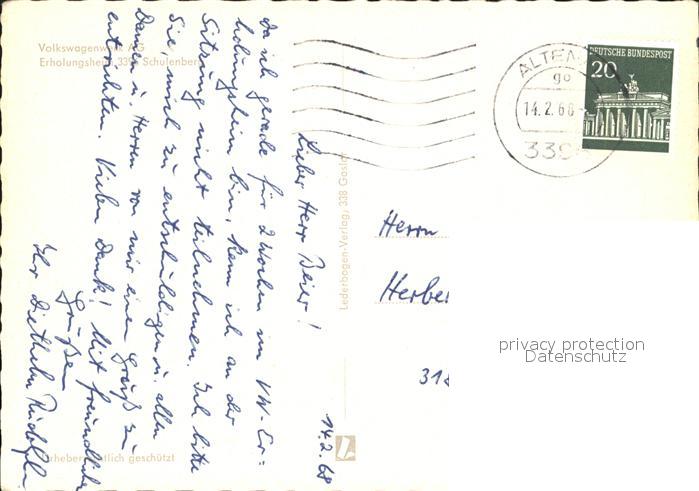 Volkswagenwerk AG
Erholungsheim 339 Schulenberg
14.2.68
Lieber Herr Beier!
da ich gerade für 2 Wochen im VW-Er=
holungsheim bin, kann ich an der
Sitzung nicht teilnehmen. Ich bitte
Sie, mich zu entschuldigen u. allen
Damen u. Herren von mir einen Gruß zu
entrichten. Vielen Dank! Mit freundlichen
Grüßen
Ihr Diethelm
Urheberrechtlich geschützt
Lederbogen-Verlag, 338 Goslar
ALTENAU
go
14.2.68
339
DEUTSCHE BUNDESPOST
20
Herrn
Herber
318
privacy protection
Datenschutz